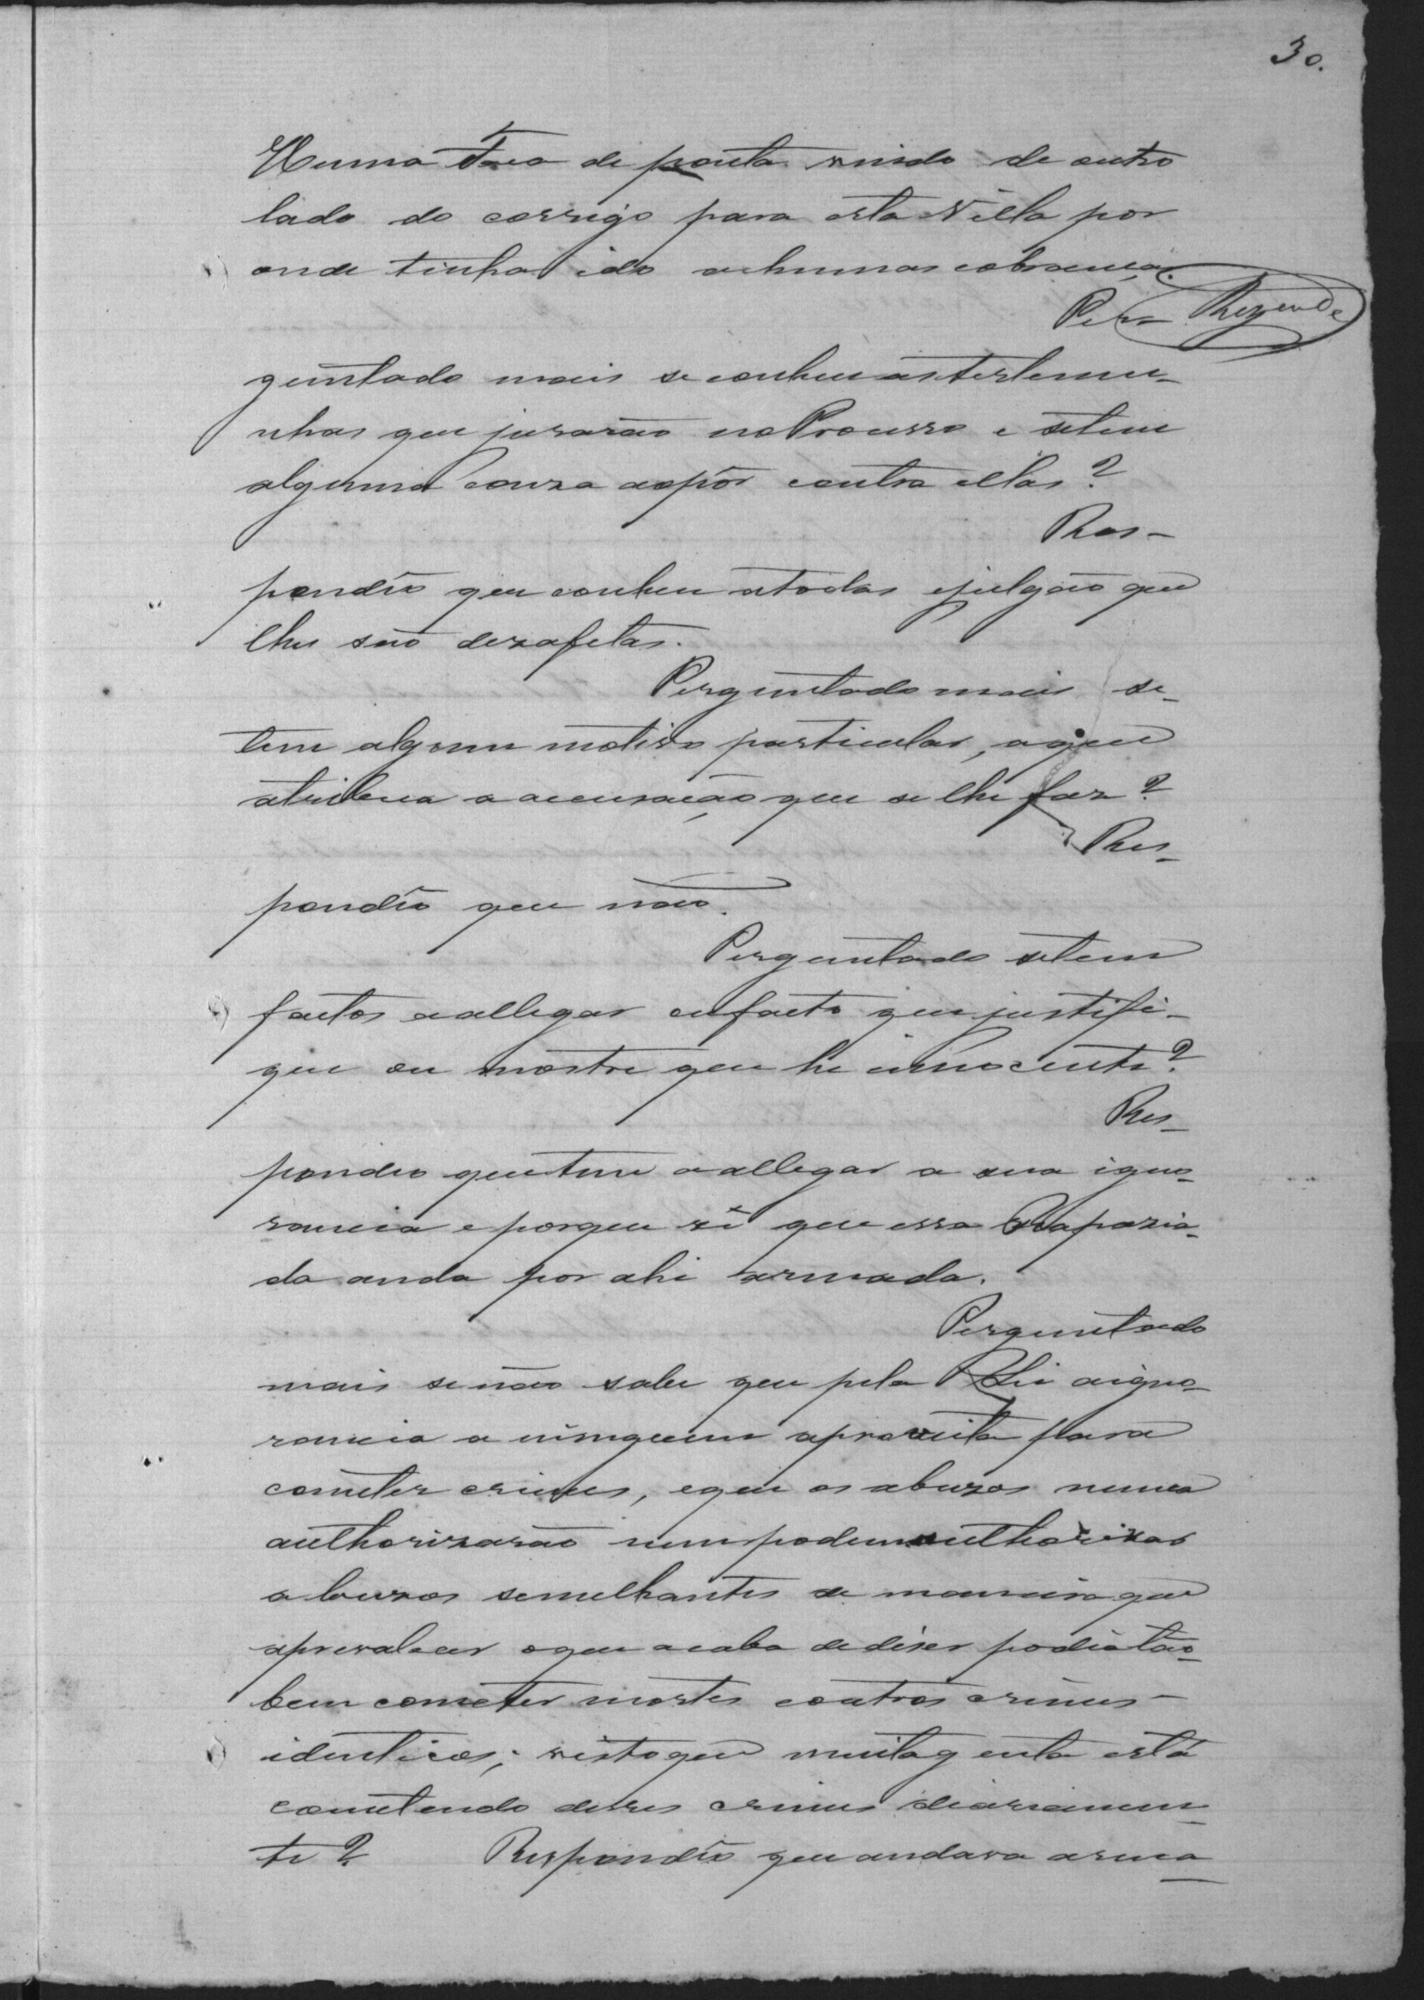 30.
Huma Faca de ponta vindo de outro
lado do corrigo para esta Villa por
onde tinha ido a humas cobrança.
Per= Rezende
guntado mais se conhece as testemu-
nhas que jurarão no Processo e se tem
alguma couza a opôr contra ellas?
Res-
pondeo que conhece a todas e julgão que
lhes são dezafetas.
Perguntado mais se-
tem algum motivo particular, a que
atribua a accusação que se lhe faz?
Res-
pondeo que não.
Perguntado se tem
factos a allegar ou facto que justifi-
que ou mostre que he innocente?
Res-
pondeo que tem a allegar a sua igno-
rancia e porque vê que essa Rapazia-
da anda por ahi armada.
Perguntado
mais se não sabe que pela Lei a igno-
rancia a ninguem aproveita para
cometer crimes, e que os abuzos nunca
authorizarão nem podem authorizar
abuzos semelhantes de maneira que
a prevalecer o que acaba de diser podia tão-
bem cometer mortes e outros crimes-
identicos; visto que muita gente está
cometendo desses crimes diariamen-
te? Respondeo que andava arma-